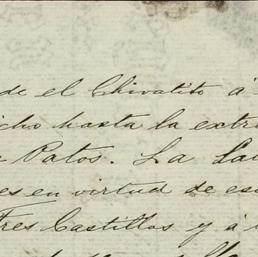 de el Chivatito á
cho hasta la extre
Patos. La La
es en virtud de es
Tres Castillos y á